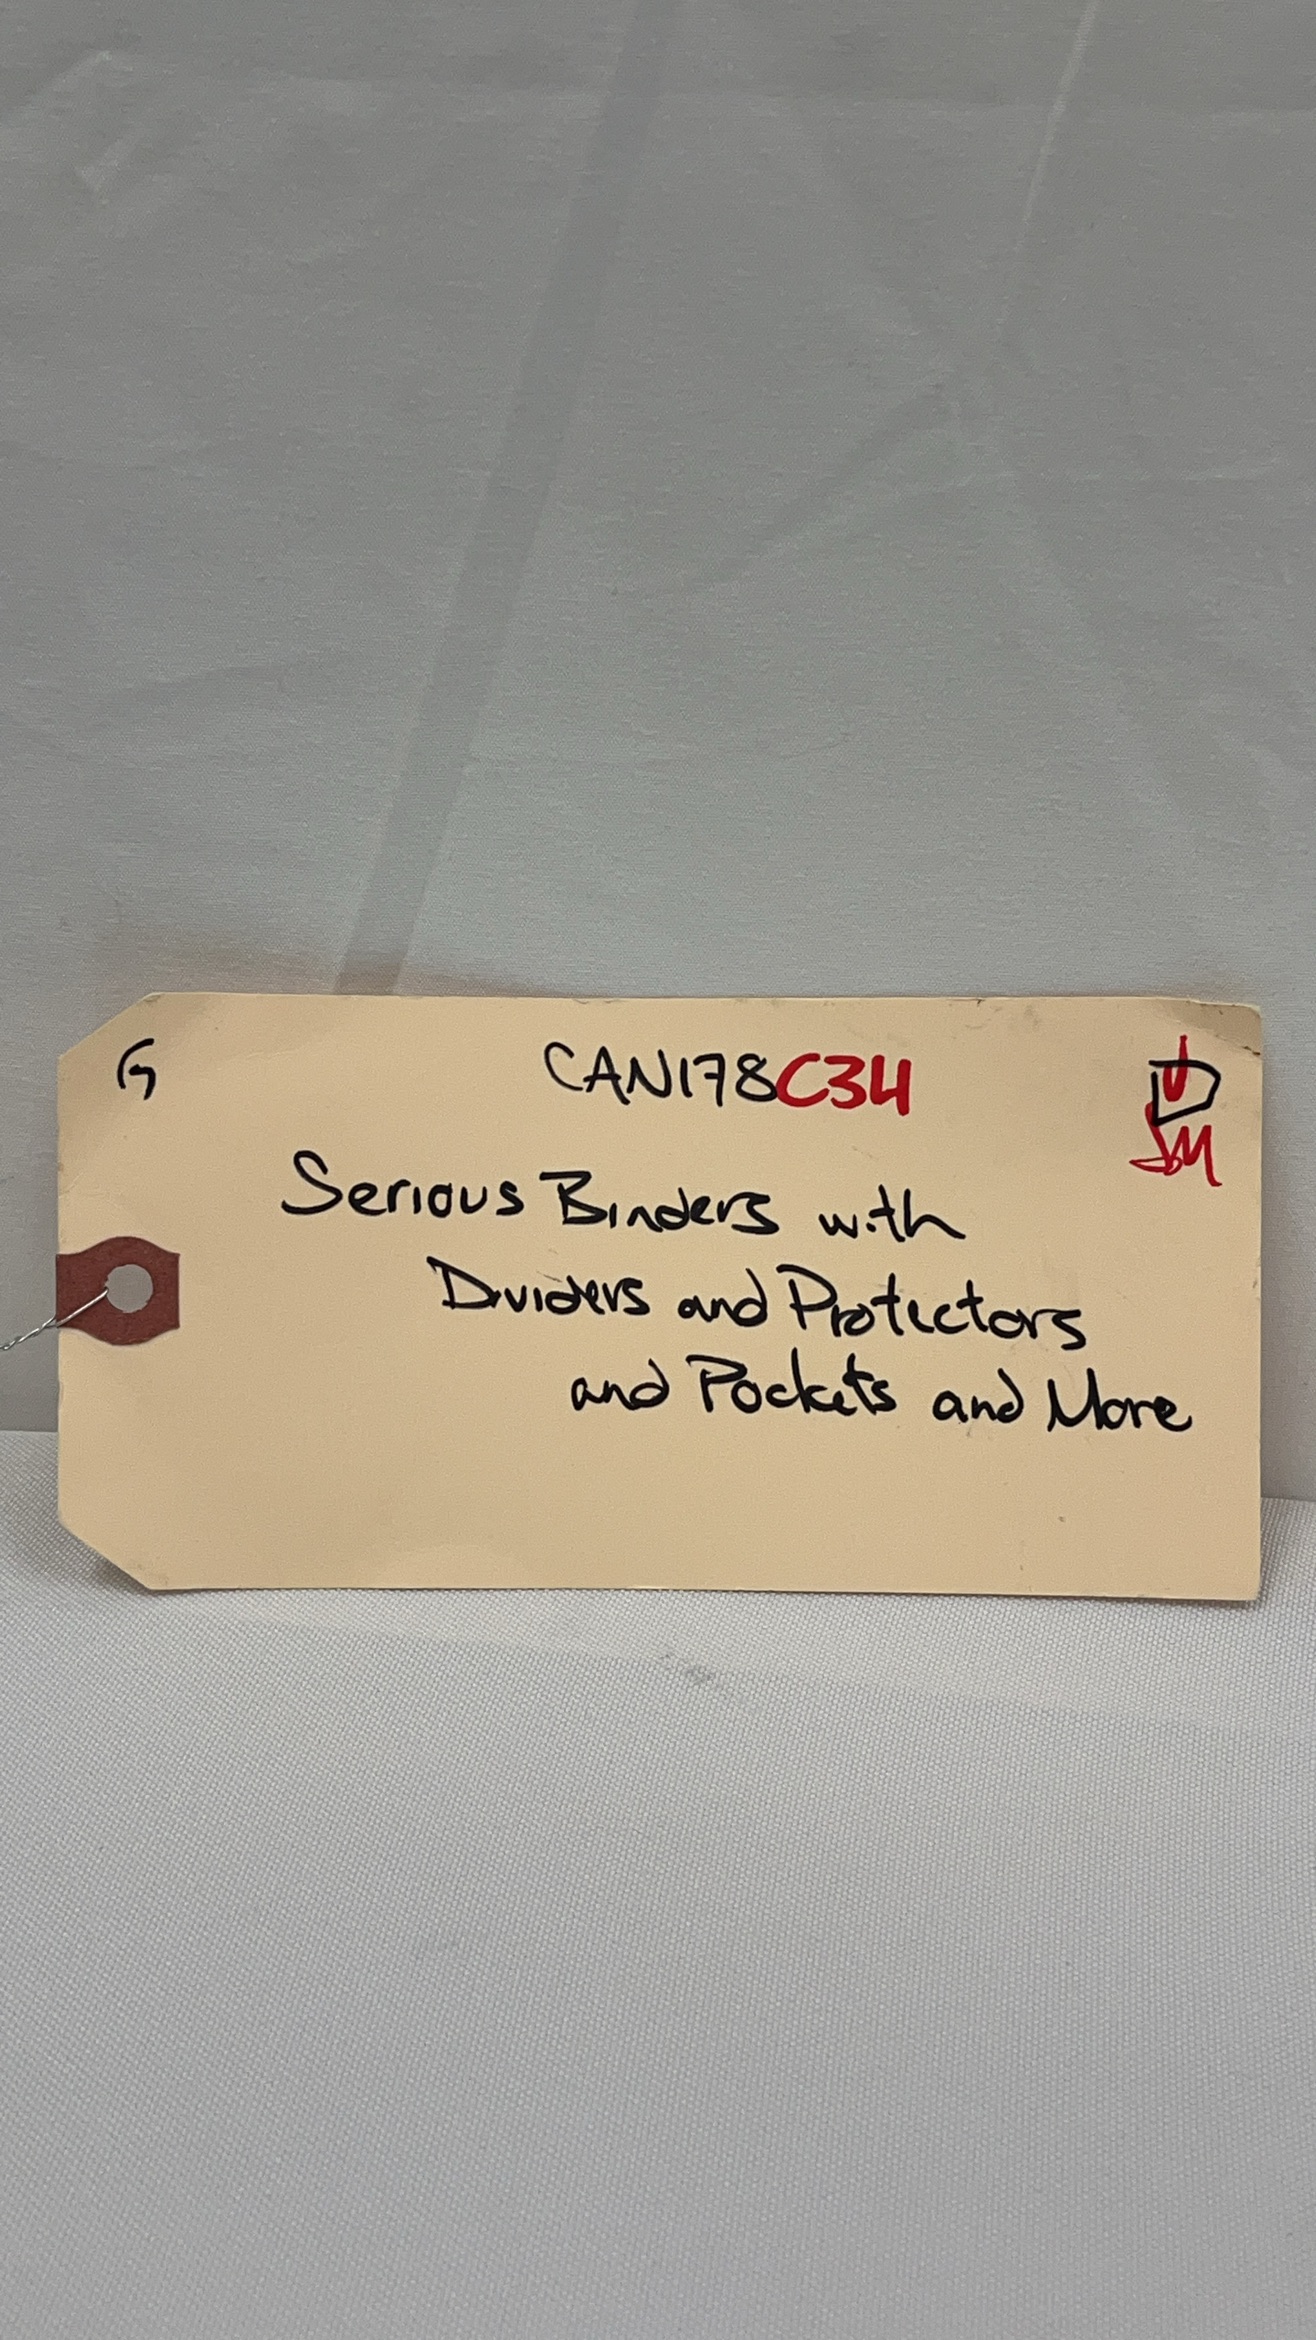 G CAN178C34 D
SM
Serious Binders with
Dividers and Protectors
and Pockets and More